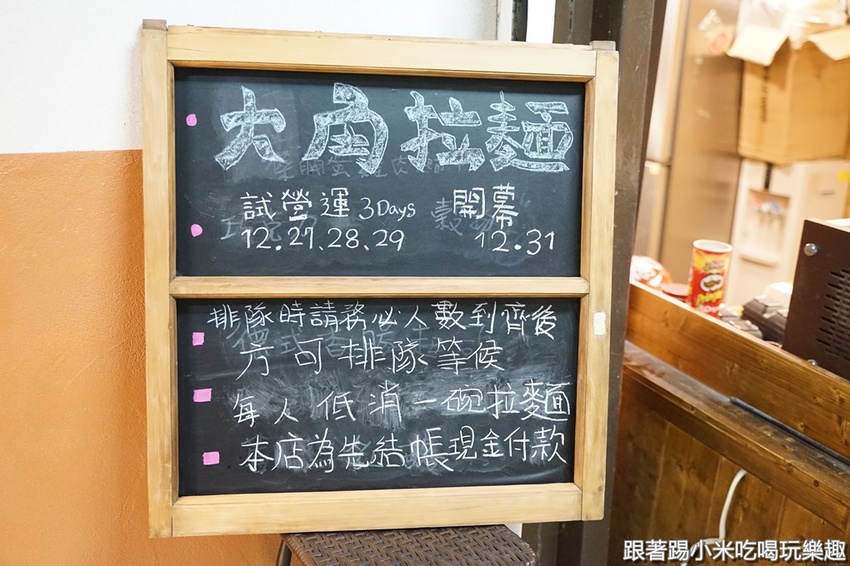 大角拉麵
試營運 3Days 開幕
12.27、28、29 12.31
排隊時請務必人數到齊後
方可排隊等候
每人低消一碗拉麵
本店為先結帳現金付款
Pringles
跟著踢小米吃喝玩樂趣